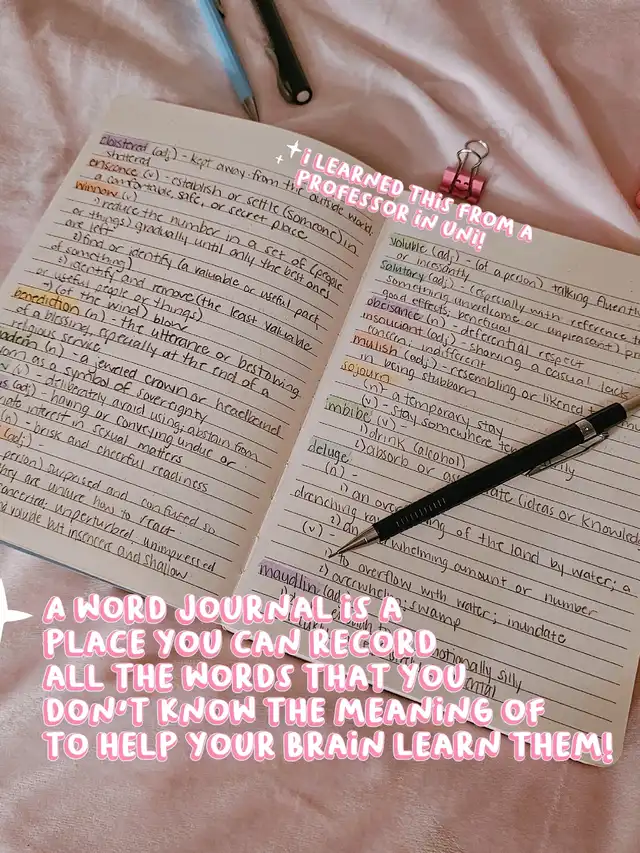 cloistered (adj) - kept away from the outside world;
sheltered
ensconce (v) - establish or settle (someone) in
a comfortable, safe, or secret place
winnow (v)
1) reduce the number in a set of (people
or things) gradually until only the best ones
are left
2) find or identify (a valuable or useful part
of something)
3) identify and remove (the least valuable
or useful people or things)
4) (of the wind) blow
benediction (n) - the utterance or bestowing
of a blessing, especially at the end of a
religious service
(n) - a jeweled crown or headband
worn as a symbol of sovereignty
(v) - deliberately avoid using; abstain from
(adj) - having or conveying undue or
interest in sexual matters
(n) - brisk and cheerful readiness
(adj) -
person) surprised and confused so
they are unsure how to react
unperturbed, unimpressed
voluble but insincere and shallow
✨ I LEARNED THIS FROM A
PROFESSOR IN UNI!
voluble (adj) - (of a person) talking fluently
or incessantly
salutary (adj) - (especially with reference to
something unwelcome or unpleasant)
good effects; beneficial
obeisance (n) - deferential respect
insouciant (adj) - showing a casual lack
concern; indifferent
mulish (adj) - resembling or likened to
in being stubborn
sojourn
(n) - a temporary stay
(v) - stay somewhere
imbibe (v) -
1) drink (alcohol)
2) absorb or (ideas or knowledge
deluge
(n) -
1) an of the land by water; a
drenching
2) an amount or number
(v) -
1) to overflow with water; inundate
2) overwhelm; swamp
maudlin (adj)
emotionally silly
A WORD JOURNAL IS A
PLACE YOU CAN RECORD
ALL THE WORDS THAT YOU
DON'T KNOW THE MEANING OF
TO HELP YOUR BRAIN LEARN THEM!